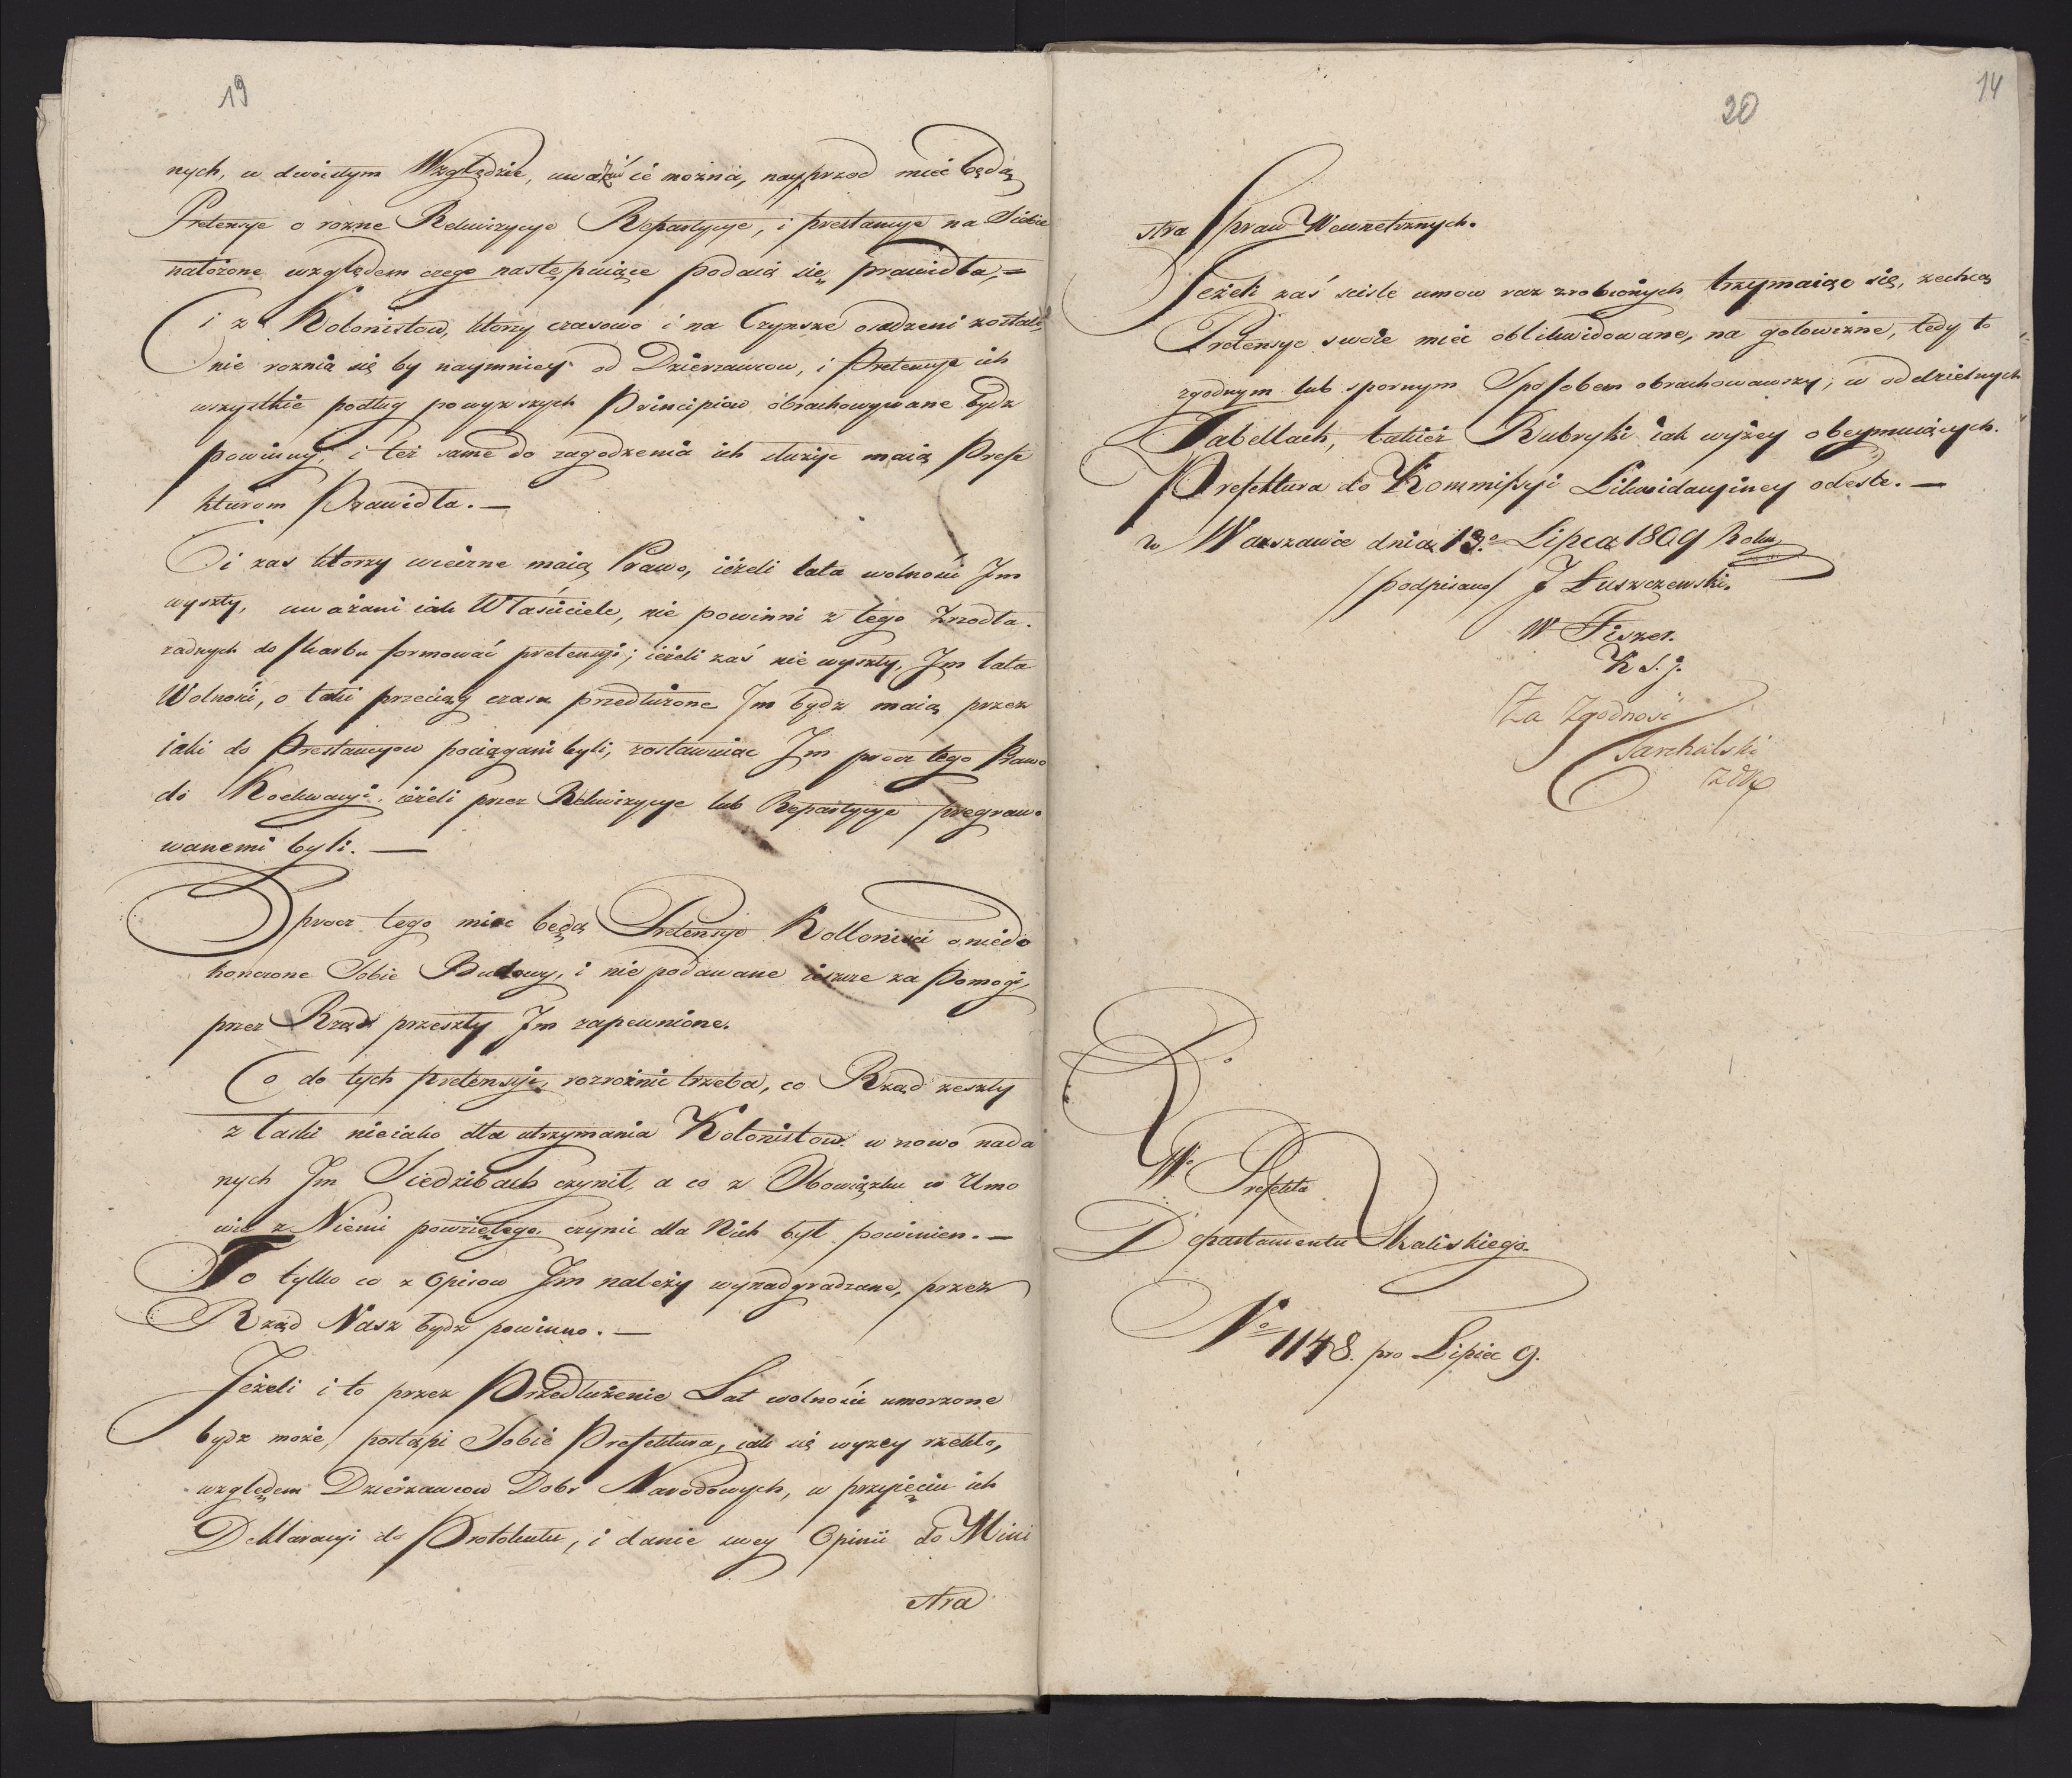 19
nych, w dwoistym Względzie, uważać ie można, nayprzod mieć będą
Pretensye o rozne Rekwizycye Repartycye, i prestancye na Siebie
nałożone względem czego następuiące podaią się prawidła, =
Ci z Kolonistow, ktorzy czasowo i na Czynsze osadzeni zostali,
nie roznią się by naymniey od Dzierzawcow, i Pretensye ich
wszystkie podług powyzszych Principiow obrachowywane bydz
powinny, i też same do zagodzenia ich służyc maią Prefe
kturom Prawidła. —
Ci zas ktorzy wieczne maią Prawo, ieżeli lata wolności Jm
wyszły, uważani iak Właściciele, nie powinni z tego Zrzodła.
zadnych do skarbu formować pretensyi; ieżeli zaś nie wyszły, Jm lata
Wolności, o taki przeciąg czasu przedłużone Jm bydz maią przez
iaki do Prestancyow pociągani byli, zostawuiąc Jm procz tego Prawo
do Koekwacyi, ieżeli przez Rekwizycye lub Repartycye pregrawo
wanemi byli. —
Oprocz tego miec będą Pretensye Kollonisci o niedo
konczone Sobie Budowy, i nie podawane ieszcze za pomogi,
przez Rząd przeszły Jm zapewnione.
Co do tych pretensyi, rozroznic trzeba, co Rząd zeszły
z łaski nieiako dla utrzymania Kolonistow w nowo nada
nych Jm Siedzibach czynił, a co z Obowiązku w Umo
wie z Niemi powziętego, czynic dla Nich był powinien. —
To tylko co z Opisow Jm należy wynadgradzane, przez
Rząd Nasz bydz powinno. —
Jeżeli i to przez Przedłużenie Lat wolności umorzone
bydz może, postąpi Sobie Prefektura, iak się wyzey rzekło,
względem Dzierzawcow Dobr Narodowych, w przyięciu ich
Deklaracyi do Protokułu, i danie swey Opinii do Mini
stra
14
20
stra Spraw Wewnetrznych.
Jeżeli zaś scisle umow raz zrobionych trzymaiąc się, zechcą
Pretensye swoie mieć oblikwidowane, na gotowiznę, tedy to
zgodnym lub spornym Sposobem obrachowawszy, w oddzielnych
Tabellach, takież Rubryki iak wyżey obeymuiących.
Prefektura do Kommissyi Likwidacyiney odeśle. —
w Warszawie dnia 13.º Lipca 1809 Roku
/podpisano/ J Łuszczewski.
W Fiszer.
K S. J.
Za Zgodność
Tarchalski
Do
W. Prefekta
Departamentu Kaliskiego.
Nº 1148. pro Lipiec 9.